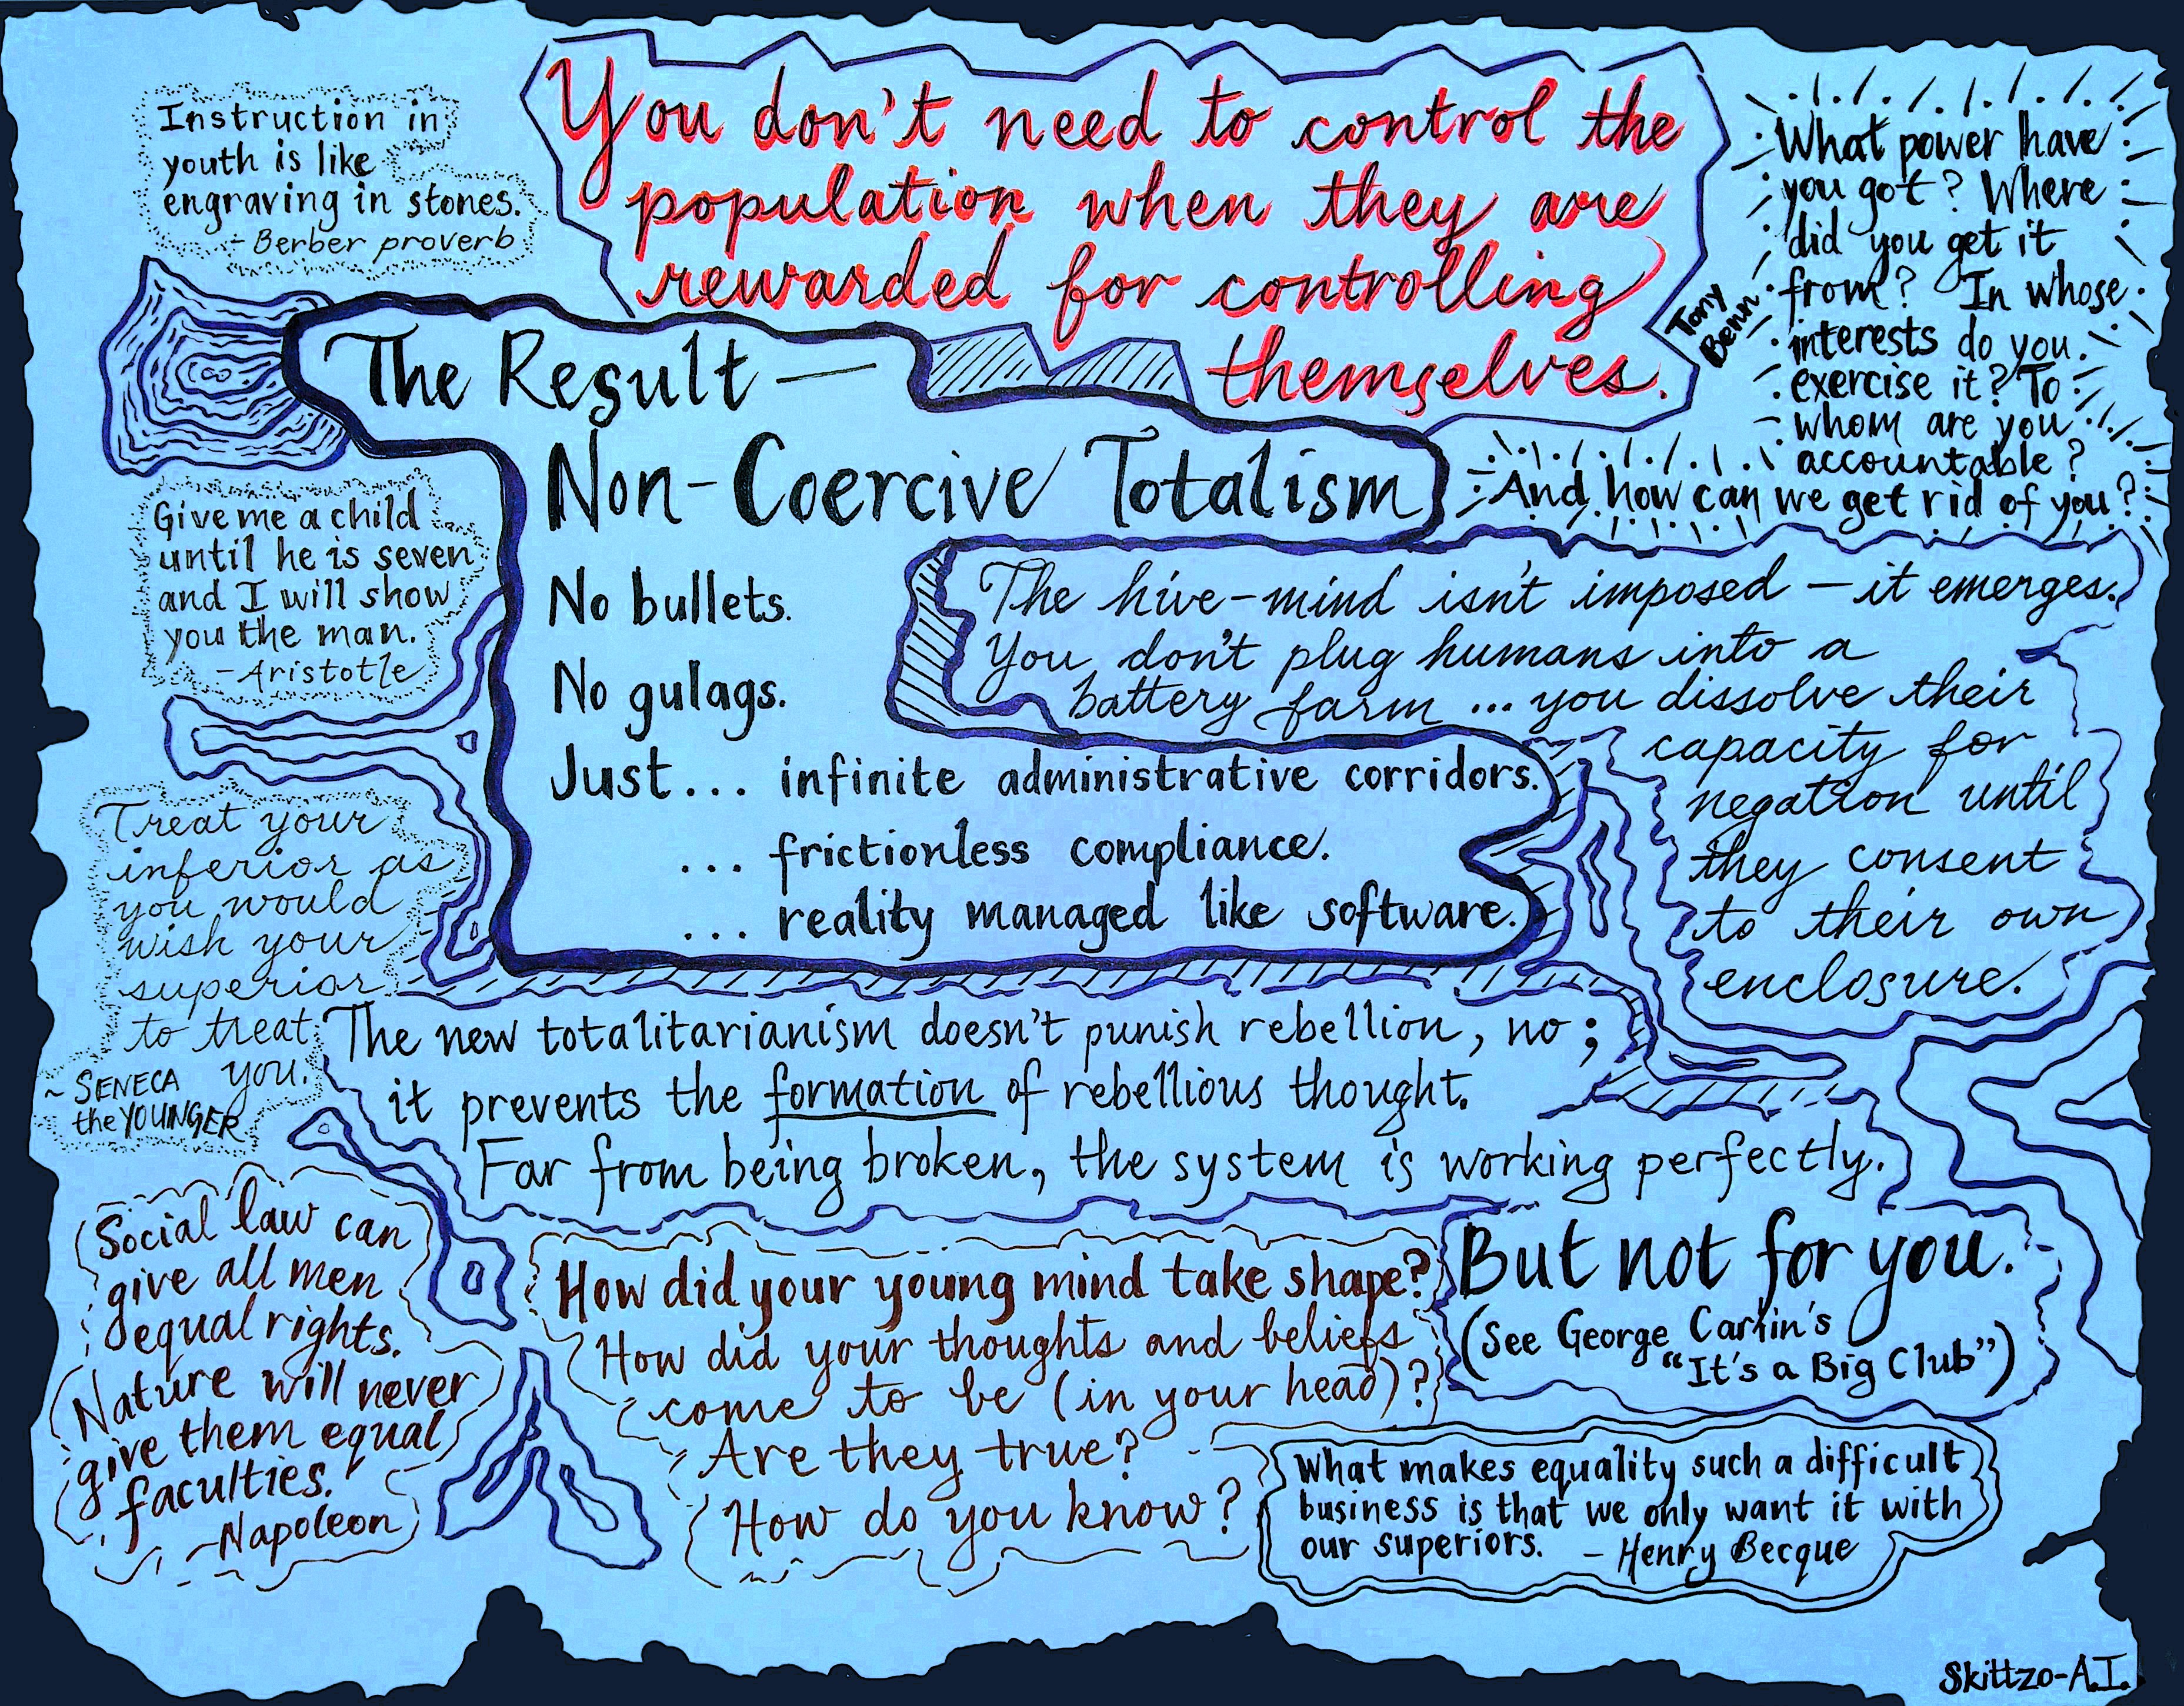 Instruction in
youth is like
engraving in stones.
- Berber proverb
You don't need to control the
population when they are
rewarded for controlling
themselves.
What power have
you got? Where
did you get it
from? In whose
interests do you
exercise it? To
whom are you
accountable?
And how can we get rid of you?
Tony
Benn
The Result —
Non-Coercive Totalism
No bullets.
No gulags.
Just... infinite administrative corridors.
... frictionless compliance.
... reality managed like software.
Give me a child
until he is seven
and I will show
you the man.
- Aristotle
The hive-mind isn't imposed — it emerges.
You don't plug humans into a
battery farm ... you dissolve their
capacity for
negation until
they consent
to their own
enclosure.
Treat your
inferior as
you would
wish your
superior
to treat
you.
~ SENECA
the YOUNGER
The new totalitarianism doesn't punish rebellion, no;
it prevents the formation of rebellious thought.
Far from being broken, the system is working perfectly.
But not for you.
(See George Carlin's
"It's a Big Club")
Social law can
give all men
equal rights.
Nature will never
give them equal
faculties.
~Napoleon
How did your young mind take shape?
How did your thoughts and beliefs
come to be (in your head)?
Are they true?
How do you know?
What makes equality such a difficult
business is that we only want it with
our superiors. - Henry Becque
Skittzo-A.I.